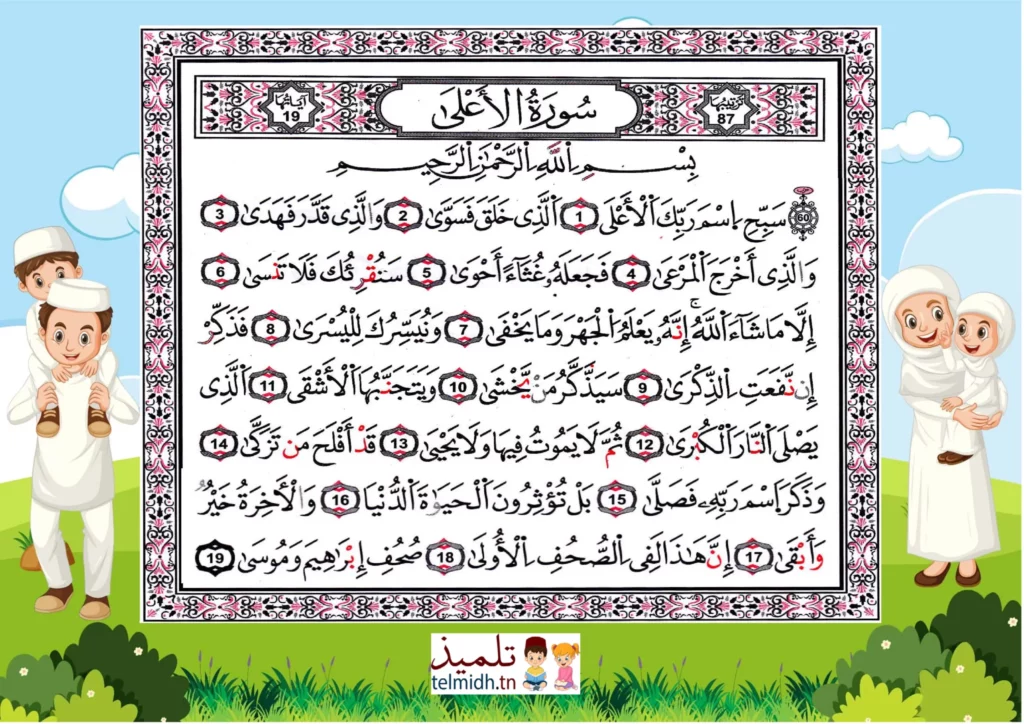 آيَاتُهَا 19
سُورَةُ الأَعْلَى
تَرْتِيبُهَا 87
بِسْمِ اِللَّهِ اِلرَّحْمَٰنِ اِلرَّحِيمِ
60 سَبِّحِ اِسْمَ رَبِّكَ اَلْأَعْلَى 1 اَلذِي خَلَقَ فَسَوَّىٰ 2 وَالذِي قَدَّرَ فَهَدَىٰ 3
وَالذِي أَخْرَجَ اَلْمَرْعَىٰ 4 فَجَعَلَهُۥ غُثَآءً أَحْوَىٰ 5 سَنُقْرِئُكَ فَلَا تَنسَىٰ 6
إِلَّا مَا شَآءَ اَللَّهُ إِنَّهُۥ يَعْلَمُ اُلْجَهْرَ وَمَا يَخْفَىٰ 7 وَنُيَسِّرُكَ لِلْيُسْرَىٰ 8 فَذَكِّرْ
إِن نَّفَعَتِ اِلذِّكْرَىٰ 9 سَيَذَّكَّرُ مَنْ يَّخْشَىٰ 10 وَيَتَجَنَّبُهَا اَلْأَشْقَى 11 اَلذِي
يَصْلَى اَلنَّارَ اَلْكُبْرَىٰ 12 ثُمَّ لَا يَمُوتُ فِيهَا وَلَا يَحْيَىٰ 13 قَدْ أَفْلَحَ مَن تَزَكَّىٰ 14
وَذَكَرَ اَسْمَ رَبِّهِۦ فَصَلَّىٰ 15 بَلْ تُؤْثِرُونَ اَلْحَيَوٰةَ اَلدُّنْيَا 16 وَالْأَخِرَةُ خَيْرٌ
وَأَبْقَىٰ 17 إِنَّ هَٰذَا لَفِي اِلصُّحُفِ اِلْأُولَىٰ 18 صُحُفِ إِبْرَاهِيمَ وَمُوسَىٰ 19
تلميذ
telmidh.tn